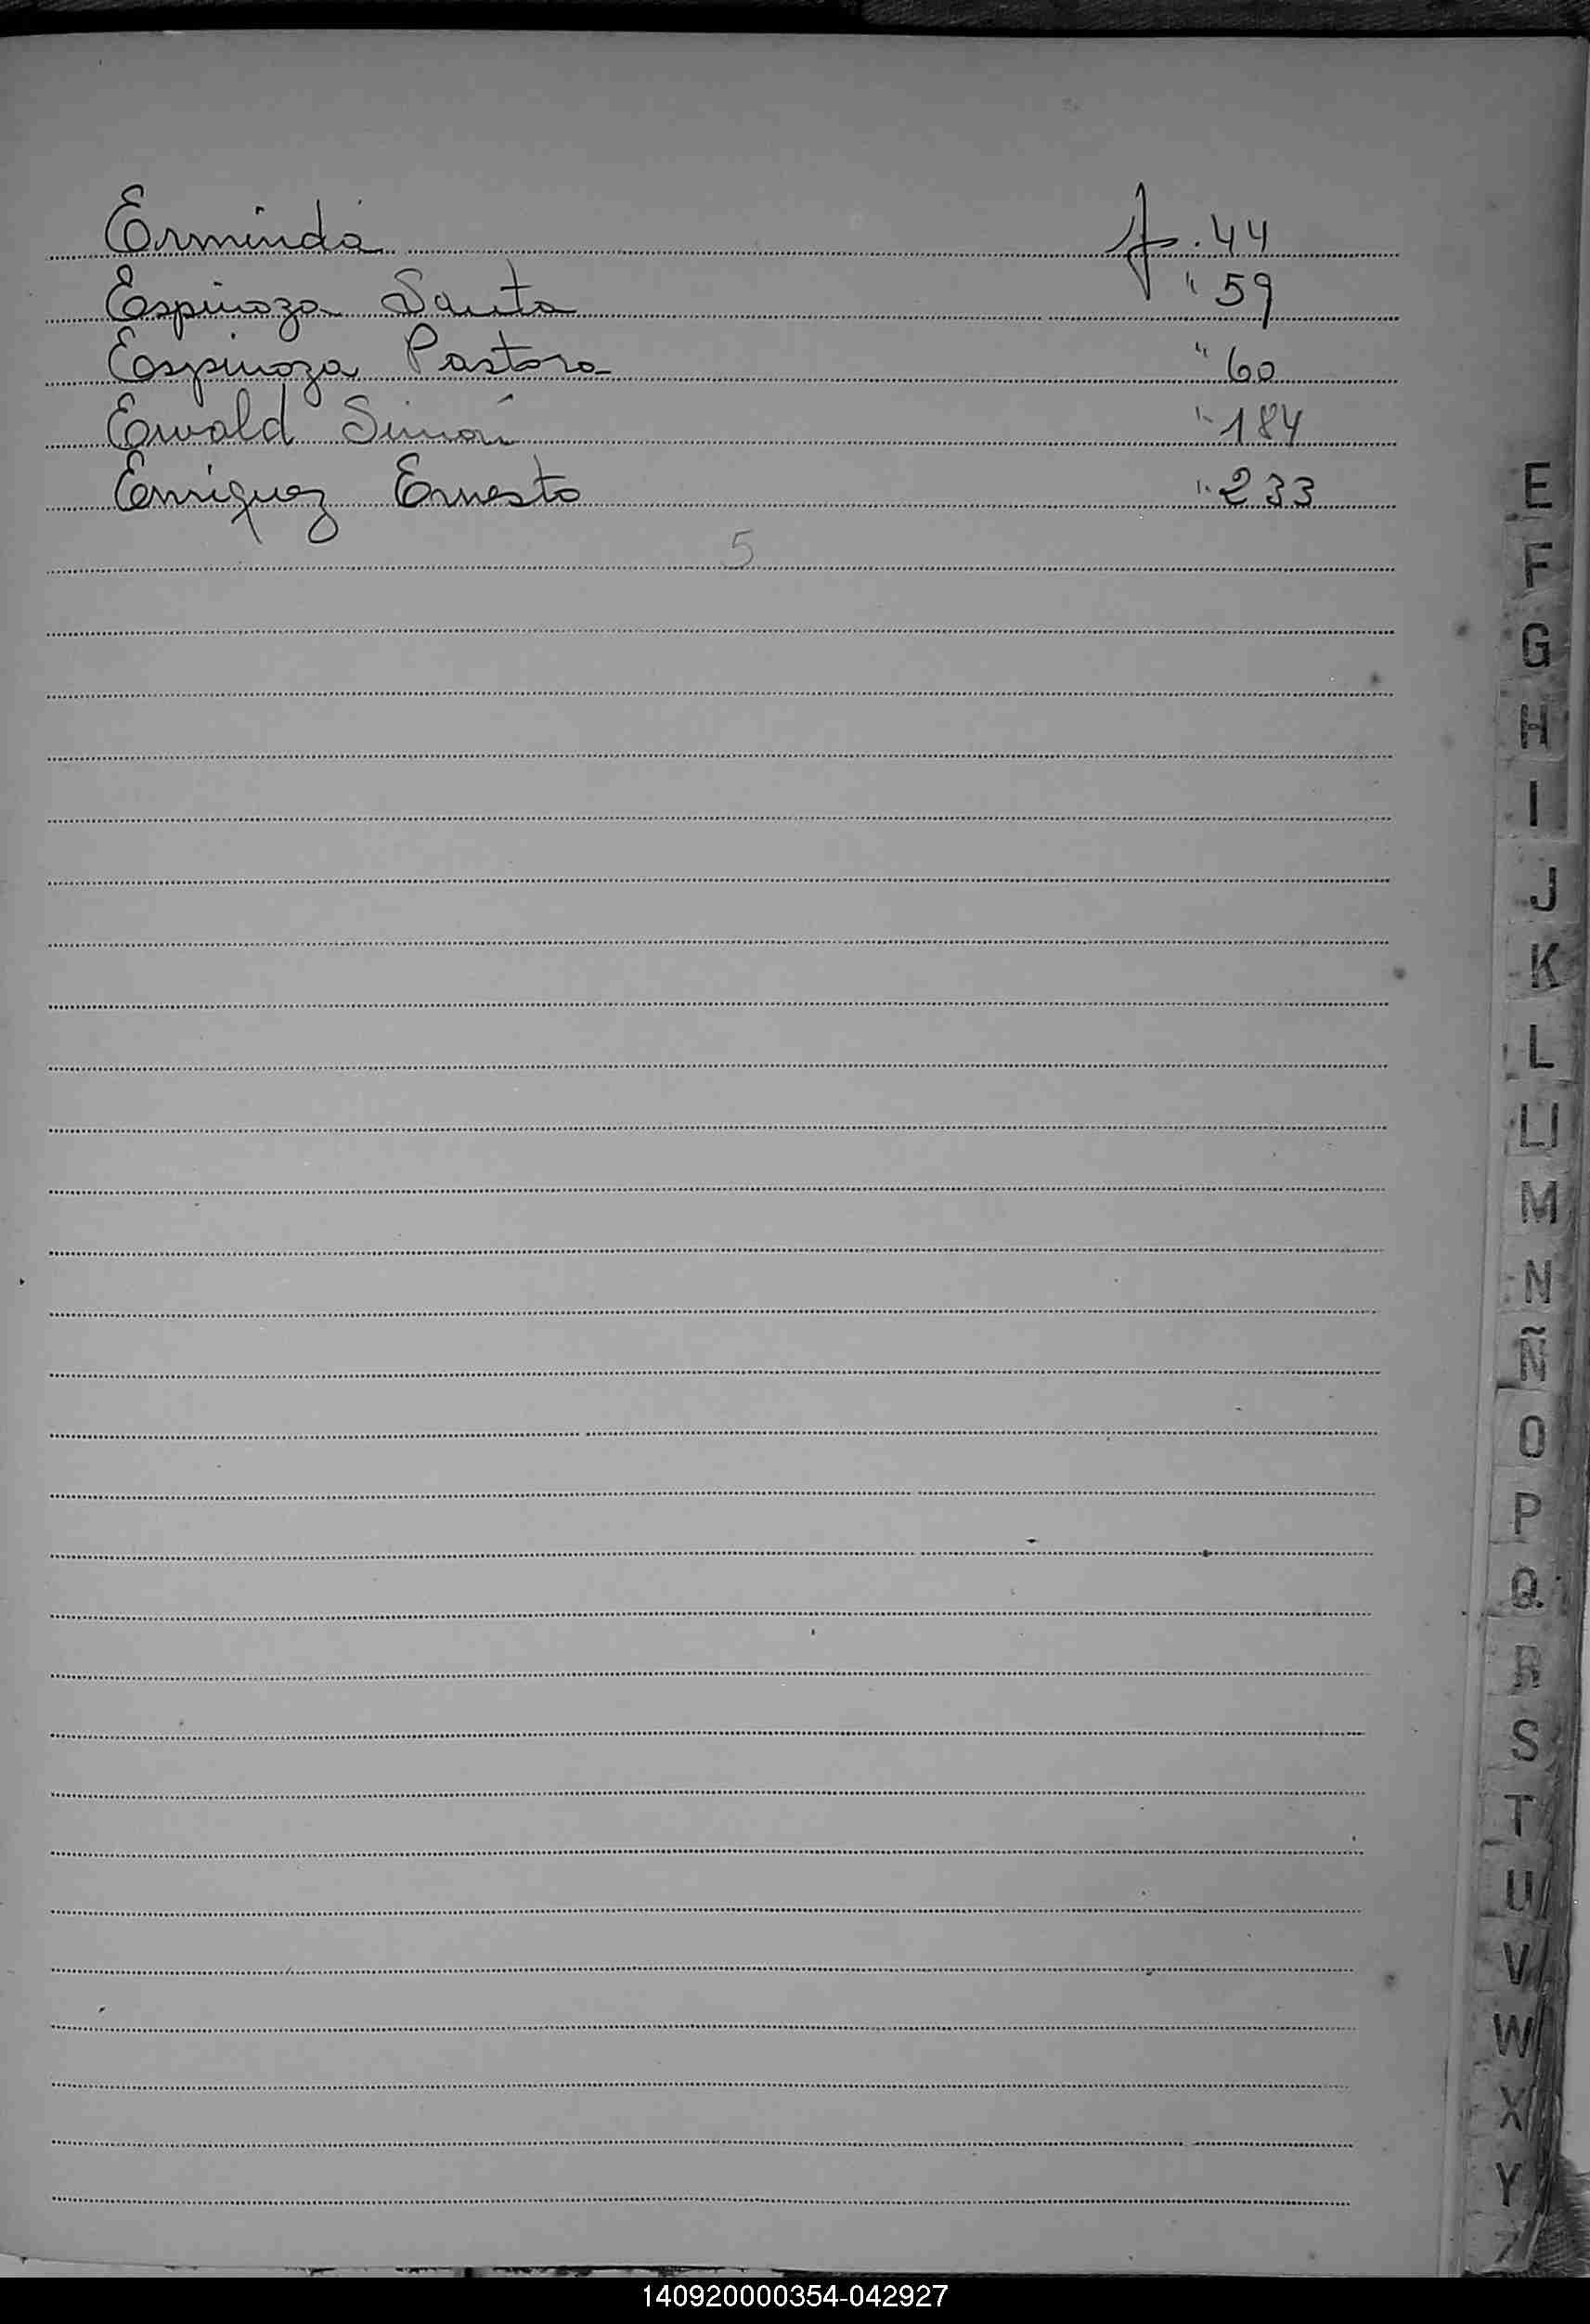 Erminda f. 44
Espinoza Santa " 59
Espinoza Pastora " 60
Ewald Simón " 184
Enriquez Ernesto " 233
5
E
F
G
H
I
J
K
L
Ll
M
N
Ñ
O
P
Q
R
S
T
U
V
W
X
Y
Z
140920000354-042927